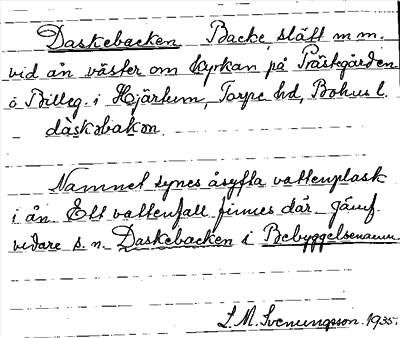 Daskebacken Backe, slätt m m.
vid ån väster om kyrkan på Prästgården
ö Billeg. i Hjärtum, Torpe hd, Bohus l.
daskəbakən.
Namnet synes åsyfta vattenplask
i ån. Ett vattenfall finnes där. Jämf.
vidare s. n. Daskebacken i Bebyggelsenamn.
L. M. Svenungsson. 1935.